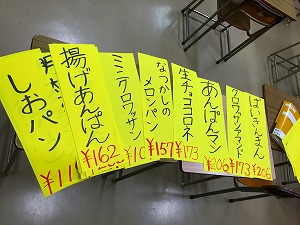 しおパン
¥11
揚げあんぱん
¥162
ミニクロワッサン
¥10
なつかしの
メロンパン
¥157
生チョココロネ
¥173
あんぱんマン
¥206
クロワッサンサンド
¥173
ばいきんまん
¥206